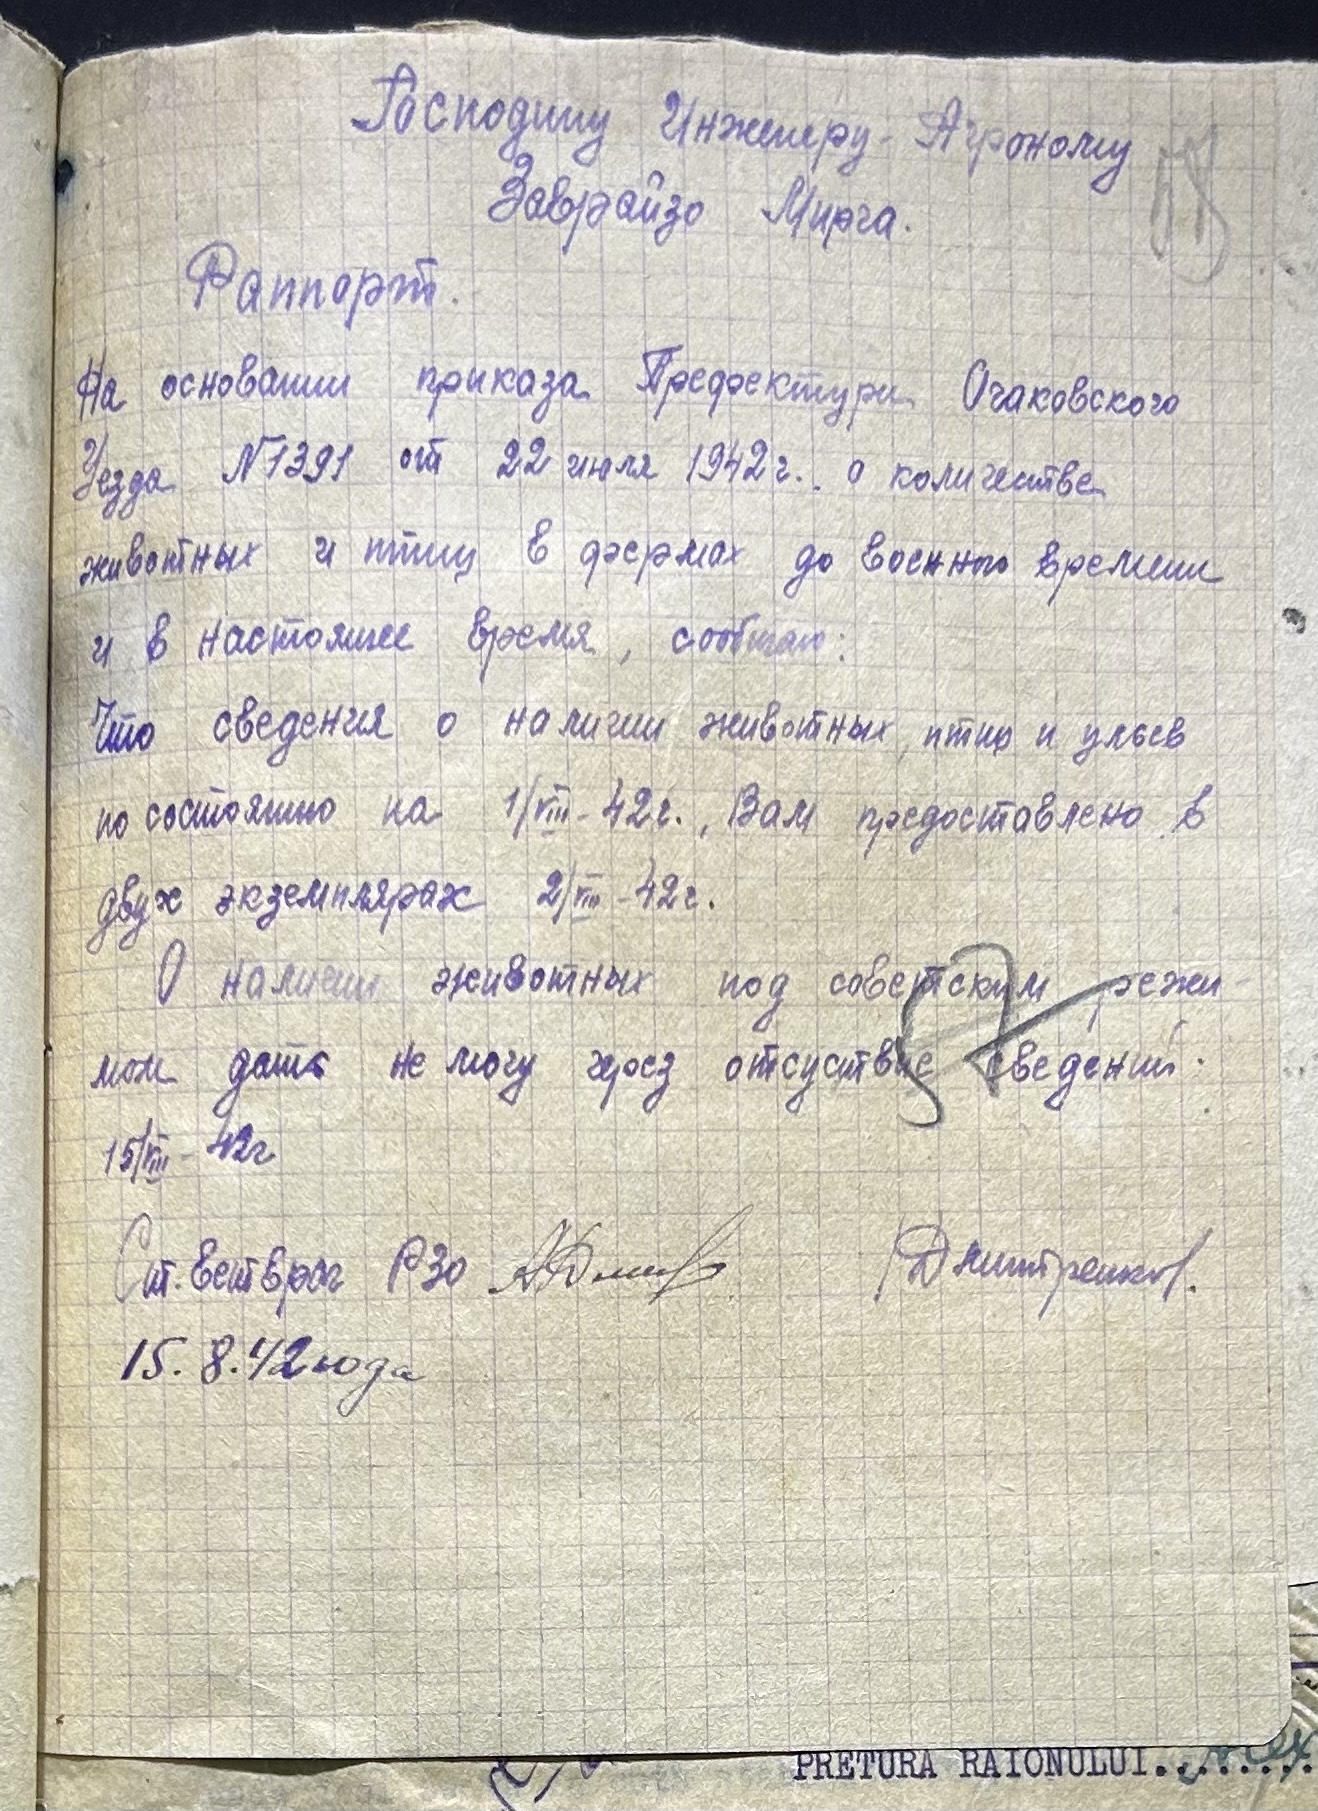 Господину Инженеру-Агроному
Заврайзо Мирча.
Раппорт.
На основании приказа Префектури Очаковского
Уезда №1391 от 22 июля 1942г. о количестве
животных и птиц в фермах до военного времени
и в настоящее время, сообщаю:
Что сведения о наличии животных, птиц и ульев
по состоянию на 1/VIII-42г., Вам предоставлено в
двух экземплярах 2/VIII-42г.
О наличии животных под советским режи-
мом дать не могу через отсуствие сведений.
15/VIII-42г
Ст. Ветврач РЗО /Дмитренков.
15.8.42 года
PRETURA RAIONULUI